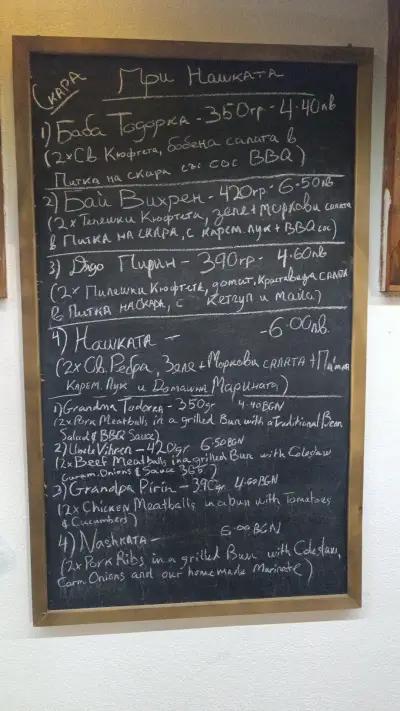 Скара
При Нашката
1) Баба Тодорка - 350гр - 4.40лв
(2xСв. Кюфтета, бобена салата в
Питка на скара със сос BBQ)
2) Бай Вихрен - 420гр. - 6.50лв
(2xТелешки Кюфтета, зеле + Моркови салата
в Питка на скара, с карам. лук + BBQ сос)
3) Дядо Пирин - 390гр - 4.60лв
(2x Пилешки Кюфтета, домат. Краставица салата
в Питка на скара, с Кетчуп и майо)
4) Нашката - - 6.00лв.
(2x Св. Ребра, Зеле + Моркови салата + Питка
Карам. Лук и Домашна Марината)
1) Grandma Todorka - 350gr 4.40BGN
(2x Pork Meatballs in a grilled Bun with a Traditional Bean
Salad & BBQ Sauce)
2) Uncle Vihren - 420gr 6.50BGN
(2x Beef Meatballs in a grilled Bun with Coleslaw
Caram. Onions & Sauce
3) Grandpa Pirin - 390gr 4.60BGN
(2x Chicken Meatballs in a bun with Tomatoes
& Cucumbers)
4) Nashkata - 6.00BGN
(2x Pork Ribs in a grilled Bun with Coleslaw,
Carm. Onions and our homemade Marinate)